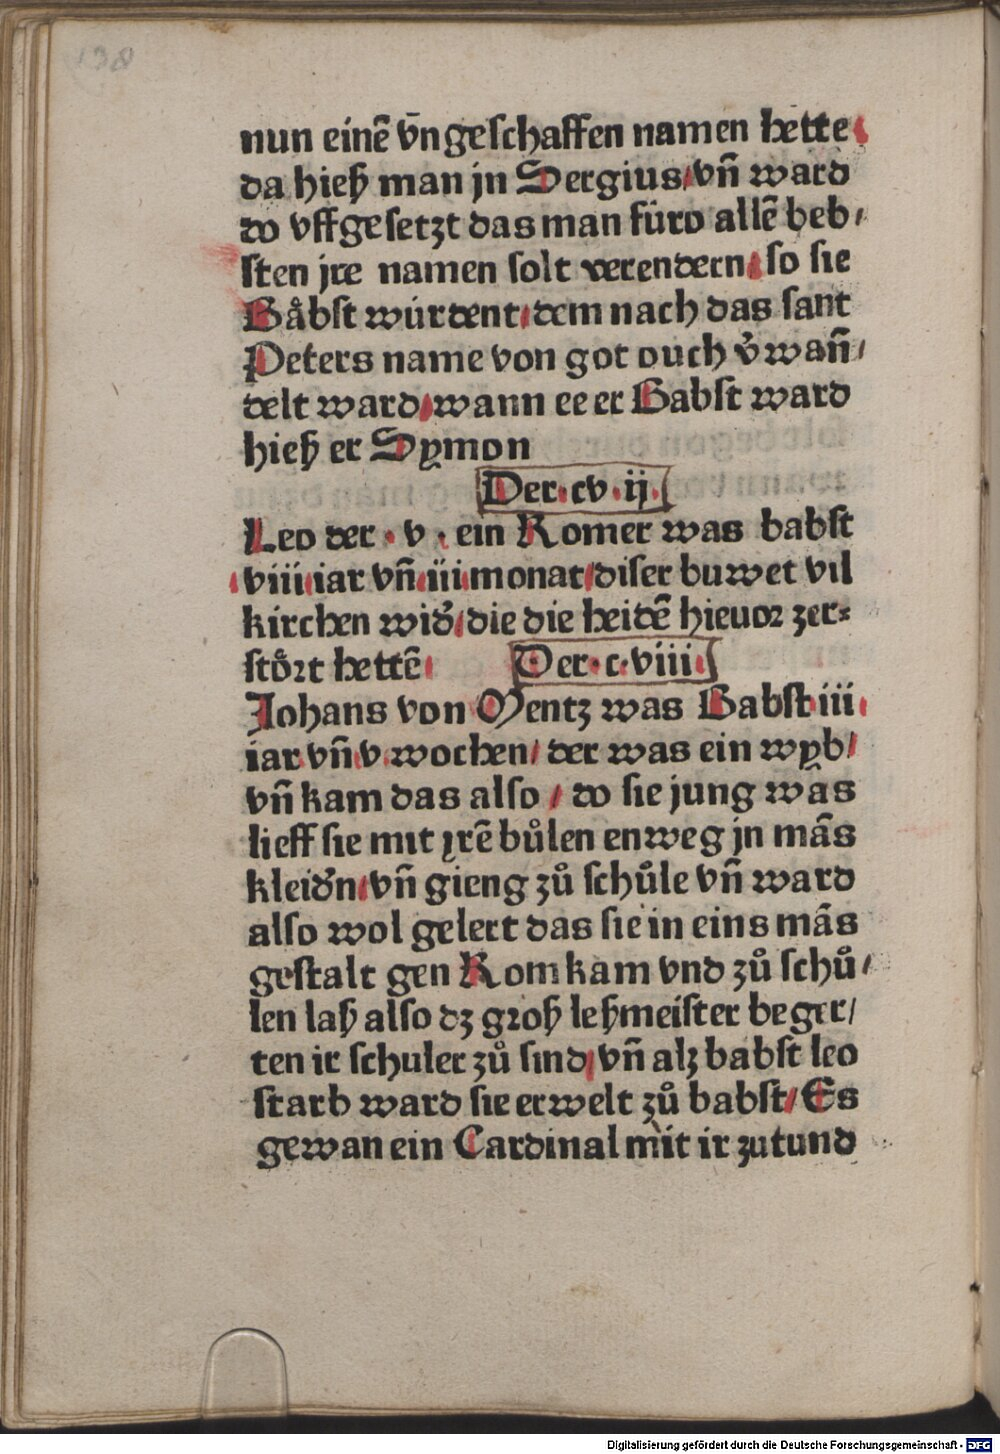 138
nun einē vngeschaffen namen hette
da hieß man jn Sergius/ vñ ward
do vffgesetzt das man füro allē beb/
sten jre namen solt verendern/ so sie
Båbst wúrdent/ dem nach das sant
Peters name von got ouch v̓wañ/
delt ward/ wann ee er Babst ward
hieß er Symon
Der·cv·ij·
Leo der·v·ein Romer was babst
viii iar vñ iii monat/ diser buwet vil
kirchen wid̓/ die die heidē hieuor zer⸗
stört hettē
Der·c·viii
Johans von Mentz was Babst iii
iar vñ v wochen/ der was ein wyb/
vñ kam das also / do sie jung was
lieff sie mit jrē bůlen enweg jn mās
kleid̓n/ vñ gieng zů schůle vñ ward
also wol gelert das sie in eins mās
gestalt gen Rom kam vnd zů schů/
len laß also dz groß leßmeister beger/
ten ir schuler zů sind/ vñ alz babst leo
starb ward sie erwelt zů babst/ Es
gewan ein Cardinal mit ir zutund
Digitalisierung gefördert durch die Deutsche Forschungsgemeinschaft - DFG